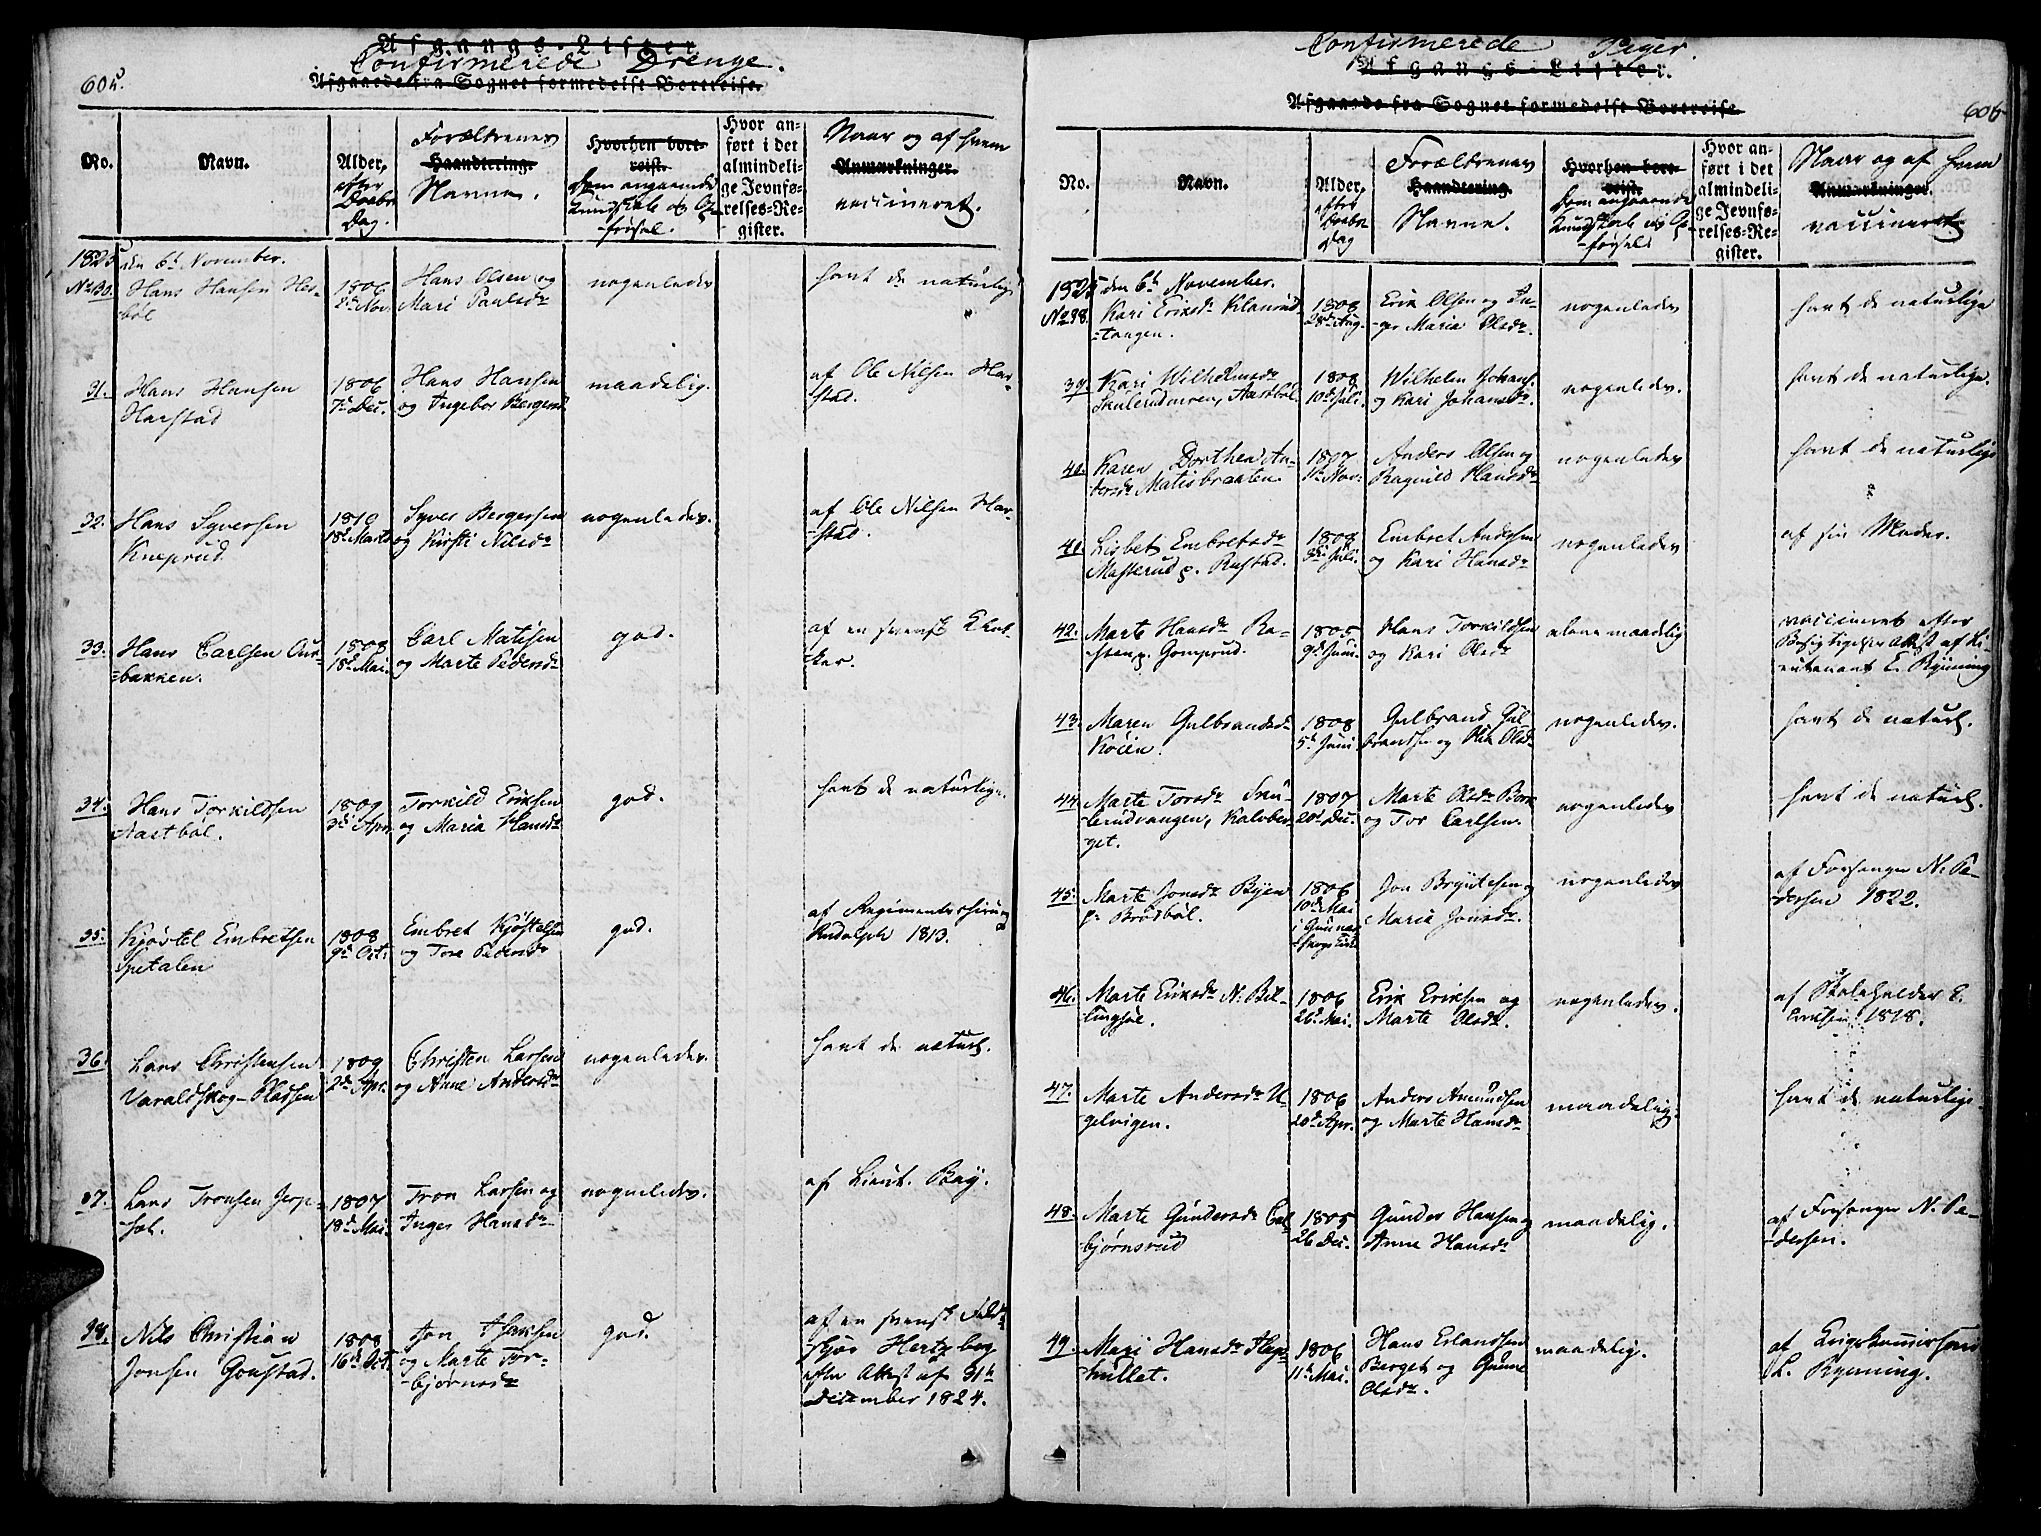 605.
Afgangs-Lister
Confirmerede Drenge.
Afgaaede fra Sognet formedelst Bortreise.
No.
Navn.
Alder,
efter
Daabs
Dag.
Forældrenes
Haandtering.
Navne.
Hvorhen bort-
reist.
Dom angaaende
Kundskab og Op-
førsel.
Hvor an-
ført i det
almindeli-
ge Jevnfø-
relses-Re-
gister.
Naar og af hvem
Anmærkninger.
vaccineret.
1825 den 6te November.
No 30. Hans Hansen Hes-
bøl
1806
2d Nov.
Hans Olsen og
Mari Paulsdr
nogenledes
havt de naturlig
31. Hans Hansen
Harstad
1806
7d Dec.
Hans Hansen
og Ingebor Bergersd
maadelig.
af Ole Nilsen Har-
stad.
32. Hans Syversen
Kneprud
1810
18d Marts
Syver Bergersen
og Kirsti Nilsdr
nogenledes.
af Ole Nilsen Har-
stad.
33. Hans Carlsen Aur-
bakken.
1808
18d Mai.
Carl Matisen
og Marte Pedersdr
god.
af en svensk
34. Hans Torkildsen
Aastbøl.
1809
3d Apr.
Torkild Eriksen
og Maria Hansdr
god.
havt de naturlige.
35. Kjøstel Embretsen
Spetalen
1808
9d Oct.
Embret Kjøstelsen
og Tore Pedersdr
god.
af Regimentschirurg
Rudolph 1813.
36. Lars Christensen
Varaldskog-Pladsen
1809
2d Apr.
Christen Larsen
og Anne Andersdr
nogenledes.
havt de naturl.
37. Lars Tronsen Jerp-
set.
1807
18d Mai.
Tron Larsen og
Inger Hansdr
nogenledes.
af Lieut. Bay.
38. Nils Christian
Jonsen Goustad.
1808
16d Oct.
Jon
og Marte Tor-
bjørnsdr
god.
af en svensk Feldt-
skjær Hertzberg
efter Attest af 31te
December 1824.
Confirmerede Piger.
Afgangs-Lister.
Afgaaede fra Sognet formedelst Bortreise
606
No.
Navn.
Alder
efter
Daabs
Dag
Forældrenes
Haandtering.
Navne.
Hvorhen bort-
reist.
Dom angaaende
Kundskab og Op-
førsel
Hvor an-
ført i det
almindeli-
ge Jevnfø-
relses-Re-
gister.
Naar og af hvem
Anmærkninger.
vaccineret.
1825 den 6te November.
No 38. Kari Eriksdr Klanrud-
tangen.
1808
28d Aug.
Erik Olsen og In-
ger Maria Olsdr.
nogenledes
havt de naturlige
39. Kari Wilhelmsdr
Skulerudmoen, Aastbøl.
1808
10d Juli.
Wilhelm Johans.
og Kari Johansdr.
nogenledes.
havt de naturlige.
40. Karen Dorthea An-
dersdr Matisbraaten.
1807
1d Nov.
Anders Olsen og
Ragnild Hansdr
nogenledes
havt de naturlige
41. Lisbet Embretsdr
Masterud p. Rustad.
1808
3d Juli.
Embret Andersen
og Kari Hansdr
nogenledes
af sin Moder.
42. Marte Hansdr Ra-
sten p. Gomprud.
1805
9d Juni.
Hans Torkildsen
og Kari Olsdr
alene maadelig
vaccineret efter
Besigtigelse Attest af Li-
eutenant E. Rynning
43. Maren Gulbrandsdr
Køien.
1808
5d Juni.
Gulbrand Gul-
brandsen og Olia Olsdr
nogenledes.
havt de naturl.
44. Marte Torsdr Sku-
lerudvangen, Kalvber-
get.
1807
20d Dec.
Marte Olsdr Berk
og Tor Carlsen.
nogenledes
havt de naturl.
45. Marte Jonsdr Byen
p. Brødbøl.
1806
10d Mai
i Grue
Jon Bryntesen og
Maria Jonsdr.
nogenledes
af Forsanger N. Pe-
dersen 1822.
46. Marte Eriksdr N. Bel-
lingsøe.
1806
26d Mai.
Erik Eriksen og
Marte Olsdr.
nogenledes.
af Skoleholder E.
Eriksen 1818.
47. Marte Andersdr U-
gelvigen.
1806
20d Apr.
Anders Amundsen
og Marte Hansdr
maadelig.
havt de naturlige.
48. Marte Gundersdr Col-
bjørnsrud
1805
26 Dec.
Gunder Hansen og
Anne Hansdr
maadelig.
af Forsanger N. Pe-
dersen.
49. Mari Hansdr Hep-
hullet.
1806
11d Mai.
Hans Erlandsen
Berget og Gunne
Olsdr.
maadelig.
af Krigskommissair
L. Rynning.